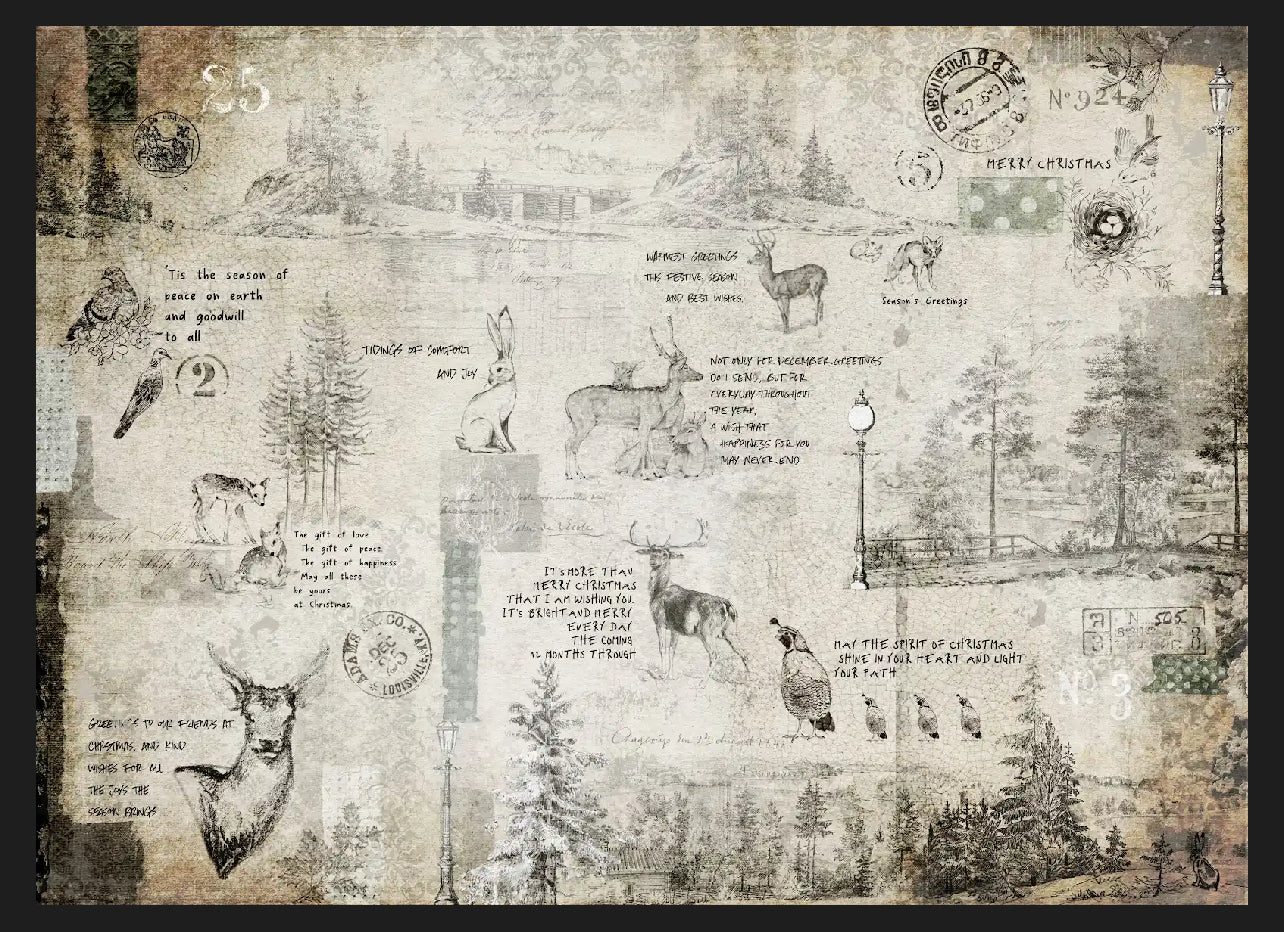 25
Nº 924
MERRY CHRISTMAS
'Tis the season of
peace on earth
and goodwill
to all
2
WARMEST GREETINGS
THIS FESTIVE SEASON
AND BEST WISHES.
Season's Greetings
TIDINGS OF COMFORT
AND JOY
NOT ONLY FOR DECEMBER GREETINGS
DO I SEND, BUT FOR
EVERYDAY THROUGHOUT
THE YEAR,
A WISH THAT
HAPPINESS FOR YOU
MAY NEVER END
The gift of love
The gift of peace
The gift of happiness
May all these
be yours
at Christmas.
IT'S MORE THAN
MERRY CHRISTMAS
THAT I AM WISHING YOU.
IT'S BRIGHT AND MERRY
EVERY DAY
THE COMING
12 MONTHS THROUGH
ADAMS EX. CO.
DEC
LOUISVILLE,
MAY THE SPIRIT OF CHRISTMAS
SHINE IN YOUR HEART AND LIGHT
YOUR PATH
N 505
Nº 3
GREETINGS TO OUR FRIENDS AT
CHRISTMAS, AND KIND
WISHES FOR ALL
THE JOYS THE
SEASON BRINGS